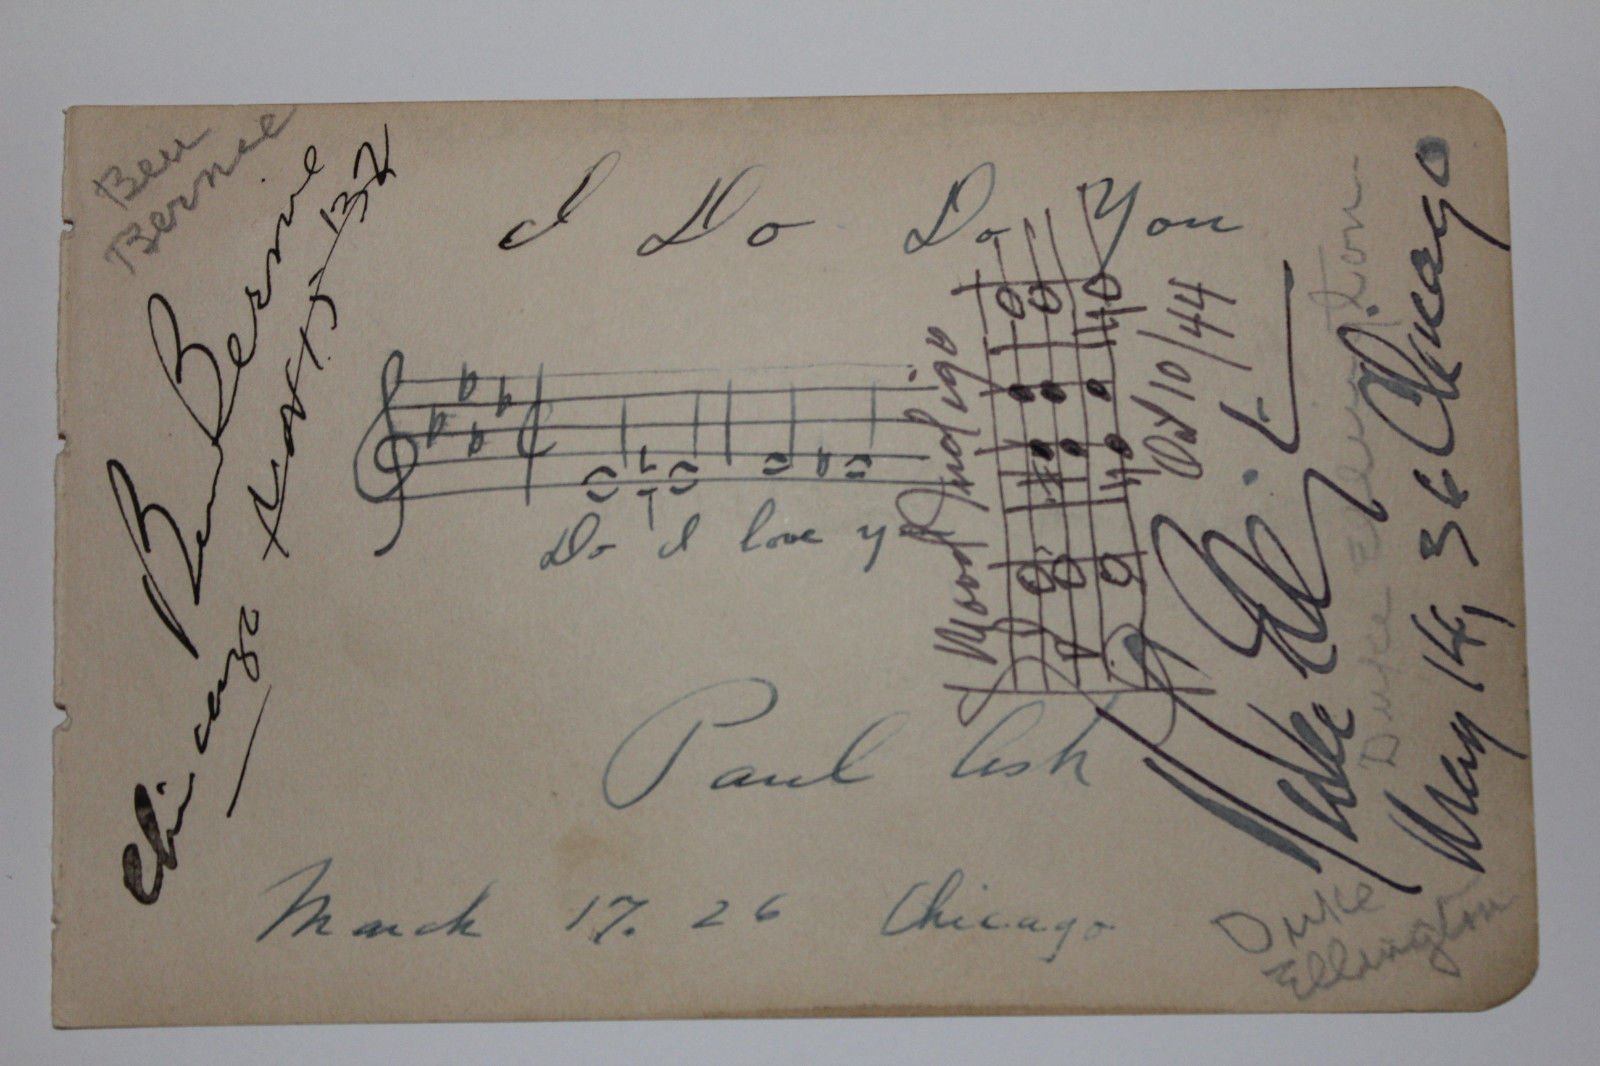 Ben
Bernie
Ben Bernie
Chicago
I Do Do You
Do I love y
Paul Ash
March 17. 26 Chicago
Mood Indigo
Oct 10/44
Duke Ellington
Duke Ellington
May 14, 36 Chicago
Duke
Ellington